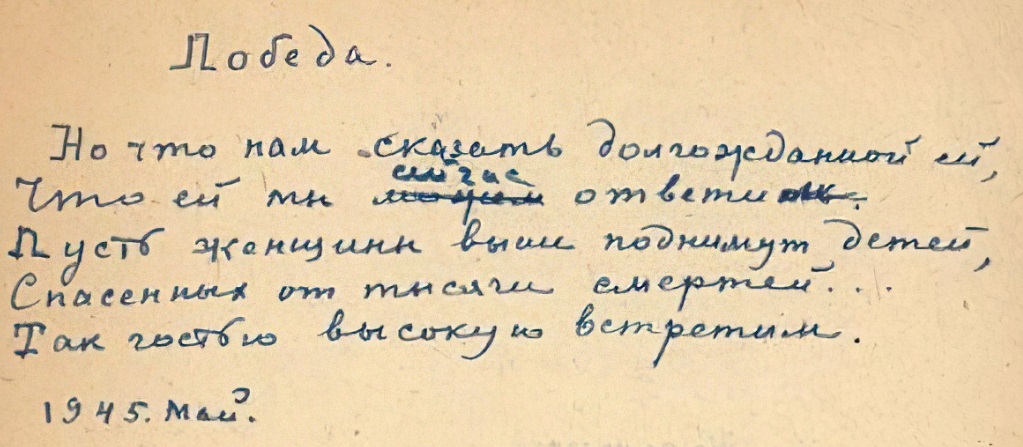 Победа.
Но что нам сказать долгожданной ей,
сейчас
Что ей мы можем ответим.
Пусть женщины выше поднимут детей,
Спасенных от тысячи смертей...
Так гостью высокую встретим.
1945. Май.